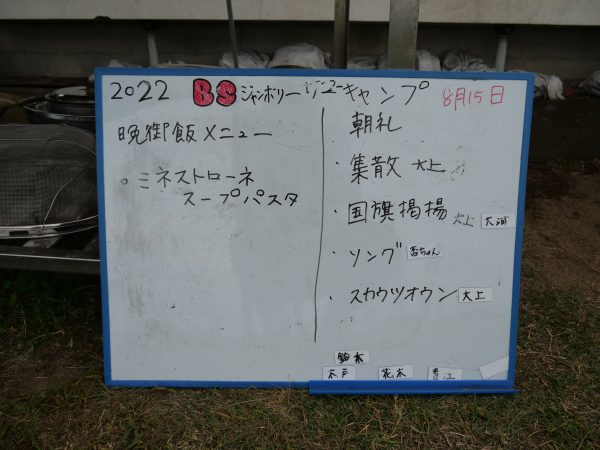 2022 BSジャンボリーリユーキャンプ 8月15日
晩御飯メニュー
。ミネストローネ
スープパスタ
朝礼
・集散 大上
・国旗掲揚 大上
・ソング 杏ちゃん
・スカウツオウン 大上
鈴木
木戸 花木 青江